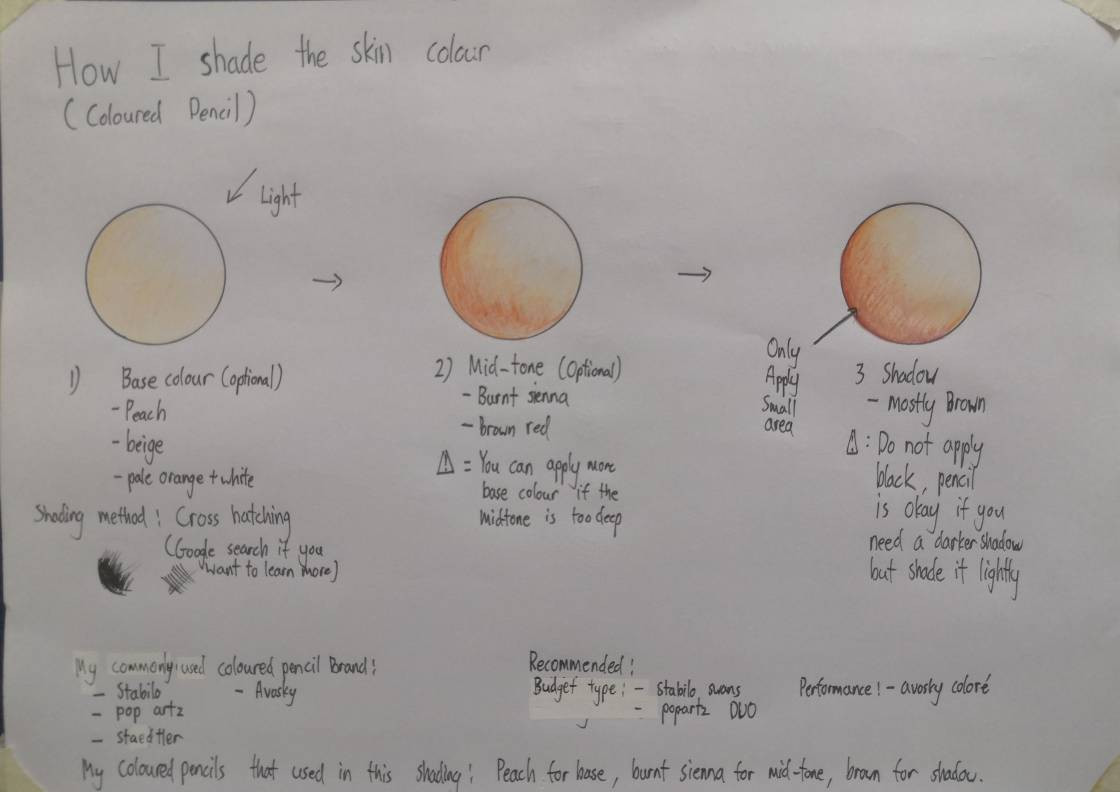 How I shade the skin colour
(Coloured Pencil)
Light
1) Base colour (optional)
- Peach
- beige
- pale orange + white
Shading method! Cross hatching
(Google search if you
want to learn more)
2) Mid-tone (Optional)
- Burnt sienna
- brown red
⚠ = You can apply more
base colour if the
midtone is too deep
Only
Apply
Small
area
3 Shadow
- Mostly Brown
⚠ : Do not apply
black, pencil
is okay if you
need a darker shadow
but shade it lightly
My commonly used coloured pencil Brand!
- Stabilo - Avosky
- pop artz
- staedtler
Recommended!
Budget type! - stabilo swans
- popartz DUO
Performance! - avosky coloré
My Coloured pencils that used in this shading! Peach for base, burnt sienna for mid-tone, brown for shadow.